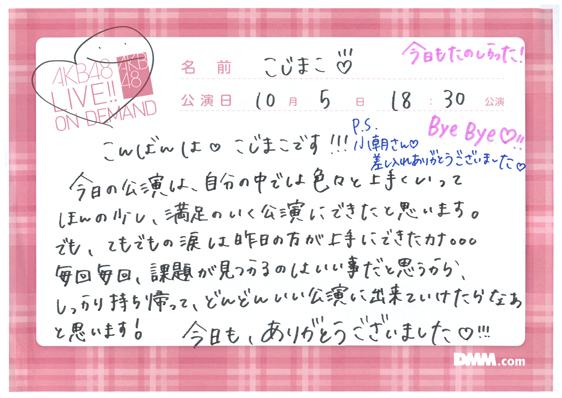 AKB48
LIVE!!
ON DEMAND
AKB
48
名前 こじまこ
今日もたのしかった！
公演日 10月 5日 18:30 公演
Bye Bye♡!!
P.S.
小朝さん♡
差し入れありがとうございました♡
こんばんは♡ こじまこです!!!
今日の公演は、自分の中では色々と上手くいって
ほんの少し、満足のいく公演にできたと思います。
でも、てもでもの涙は昨日の方が上手にできたカナ。。。
毎回毎回、課題が見つかるのはいい事だと思うから、
しっかり持ち帰って、どんどんいい公演に出来ていけたらなぁ
と思います！ 今日も、ありがとうございました♡!!!
DMM.com